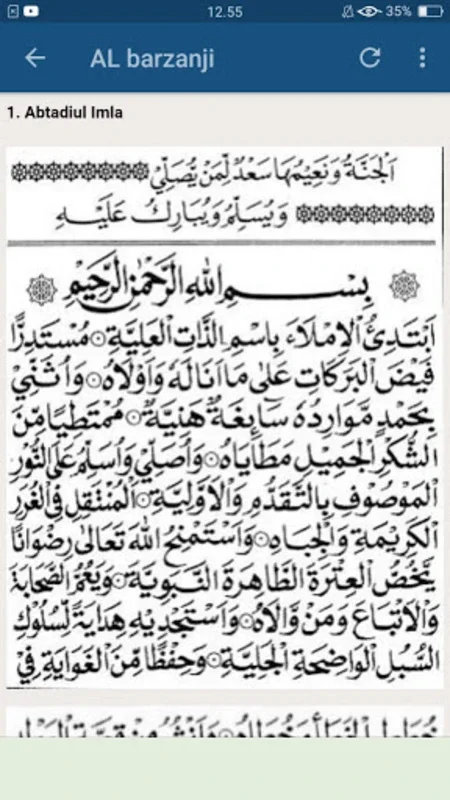 12.55
35%
AL barzanji
1. Abtadiul Imla
اَلْجَنَّةُ وَنَعِيْمُهَا سَعْدٌ لِّمَنْ يُّصَلِّيْ
وَيُسَلِّمُ وَيُبَارِكُ عَلَيْهِ
بِسْمِ اللهِ الرَّحْمٰنِ الرَّحِيْمِ
اَبْتَدِئُ الْاِمْلَاءَ بِاسْمِ الذَّاتِ الْعَلِيَّةِ ۝ مُسْتَدِرًّا
فَيْضَ الْبَرَكَاتِ عَلٰى مَا اَنَالَهُ وَاَوْلَاهُ ۝ وَاُثَنِّيْ
بِحَمْدٍ مَّوَارِدُهُ سَآئِغَةٌ هَنِيَّةٌ ۝ مُمْتَطِيًا مِّنَ
الشُّكْرِ الْجَمِيْلِ مَطَايَاهُ ۝ وَاُصَلِّيْ وَاُسَلِّمُ عَلَى النُّوْرِ
الْمَوْصُوْفِ بِالتَّقَدُّمِ وَالْاَوَّلِيَّةِ ۝ الْمُنْتَقِلِ فِي الْغُرَرِ
الْكَرِيْمَةِ وَالْجِبَاهِ ۝ وَاَسْتَمْنِحُ اللهَ تَعَالٰى رِضْوَانًا
يَّخُصُّ الْعِتْرَةَ الطَّاهِرَةَ النَّبَوِيَّةَ ۝ وَيَعُمُّ الصَّحَابَةَ
وَالْاَتْبَاعَ وَمَنْ وَّالَاهُ ۝ وَاَسْتَجْدِيْهِ هِدَايَةً لِّسُلُوْكِ
السُّبُلِ الْوَاضِحَةِ الْجَلِيَّةِ ۝ وَحِفْظًا مِّنَ الْغَوَايَةِ فِيْ